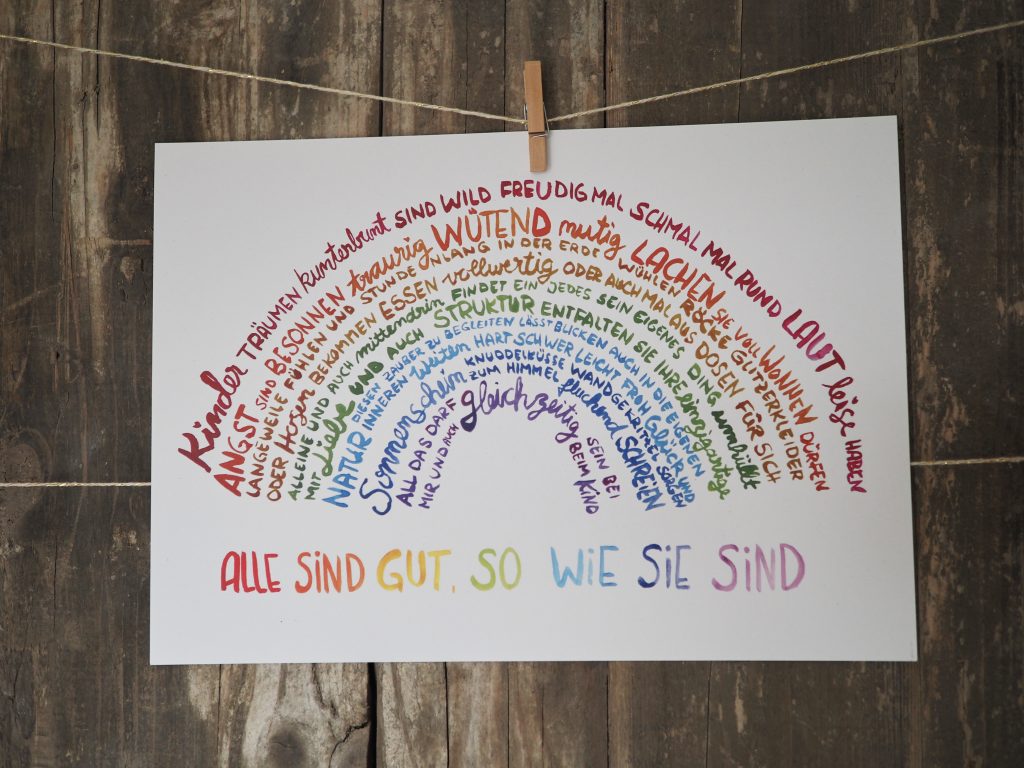 Kinder TRÄUMEN kunterbunt SIND WILD FREUDIG MAL SCHMAL MAL RUND LAUT leise HABEN
ANGST SIND BESONNEN traurig WÜTEND mutig LACHEN SIE VOLL WONNEN DÜRFEN
LANGEWEILE FÜHLEN UND STUNDENLANG IN DER ERDE WÜHLEN RÖCKE GLITZERKLEIDER
ODER Hosen BEKOMMEN ESSEN vollwertig ODER AUCH MAL AUS DOSEN FÜR SICH
ALLEINE UND AUCH mittendrin FINDET EIN JEDES SEIN EIGENES DING umhüllt
MIT Liebe UND AUCH STRUKTUR ENTFALTEN SIE IHRE einzigartige
NATUR DIESEN ZAUBER ZU BEGLEITEN LÄSST BLICKEN AUCH IN DIE EIGENEN
INNEREN Weiten HART SCHWER LEICHT FROH Glück UND
Sonnenschein KNUDDELKÜSSE WANDGEKRITZEL SAUSEN
ZUM HIMMEL fluchend SCHREIEN
ALL DAS DARF gleichzeitig SEIN BEI
MIR UND AUCH BEIM KIND
ALLE SIND GUT, SO WIE SIE SIND